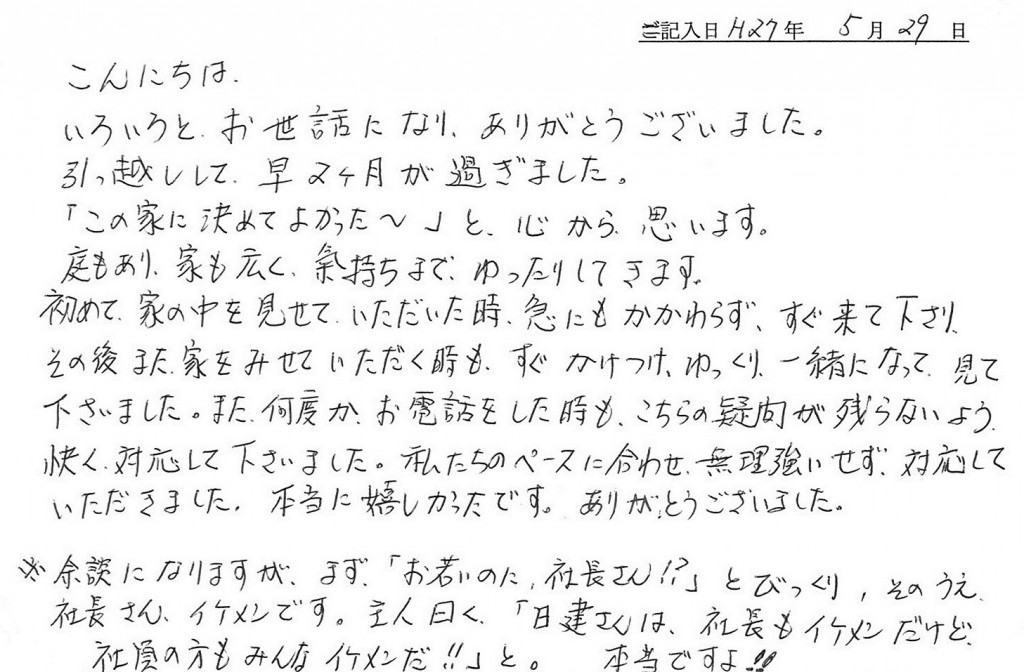 ご記入日 H27年 5月29日
こんにちは.
いろいろと、お世話になり、ありがとうございました。
引っ越しして、早2ヶ月が過ぎました。
「この家に決めてよかった〜」と、心から思います。
庭もあり、家も広く、氣持ちまで、ゆったりしてきます。
初めて、家の中を見せて、いただいた時、急にもかかわらず、すぐ来て下さり、
その後また、家をみせていただく時も、すぐかけつけ、ゆっくり、一緒になって、見て
下さいました。また、何度か、お電話をした時も、こちらの疑問が残らないよう、
快く、対応して下さいました。私たちのペースに合わせ、無理強いせず、対応して
いただきました。本当に嬉しかったです。ありがとうございました。
※余談になりますが、まず、「お若いのに、社長さん!?」とびっくり、そのうえ、
社長さん、イケメンです。主人曰く、「日建さんは、社長もイケメンだけど、
社員の方もみんなイケメンだ!!」と。 本当ですよ!!